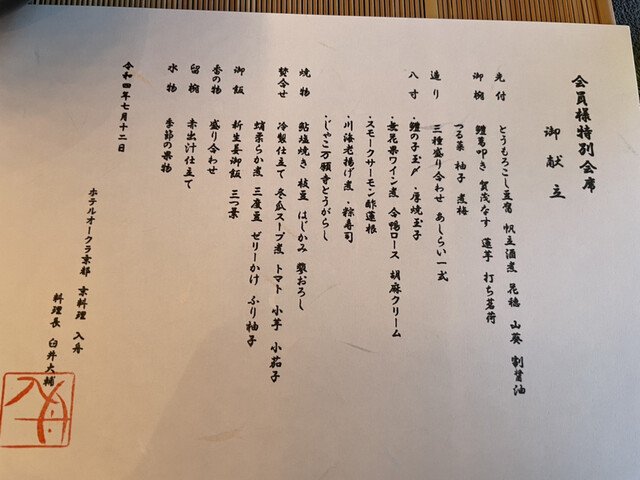 会員様特別会席
御献立
先付 とうもろこし豆腐 帆立酒煮 花穂 山葵 割醤油
御椀 鱧葛叩き 賀茂なす 蓮芋 打ち茗荷
つる菜 柚子 煮梅
造り 三種盛り合わせ あしらい一式
八寸 ・鱧の子玉〆 ・厚焼玉子
・無花果ワイン煮 合鴨ロース 胡麻クリーム
・スモークサーモン酢蓮根
・川海老揚げ煮 ・粽寿司
・じゃこ万願寺とうがらし
焼物 鮎塩焼き 枝豆 はじかみ 蓼おろし
焚合せ 冷製仕立て 冬瓜スープ煮 トマト 小芋 小茄子
蛸柔らか煮 三度豆 ゼリーかけ ふり柚子
御飯 新生姜御飯 三つ葉
香の物 盛り合わせ
留椀 赤出汁仕立て
水物 季節の果物
令和四年七月十二日
ホテルオークラ京都 京料理 入舟
料理長 臼井大輔
入舟